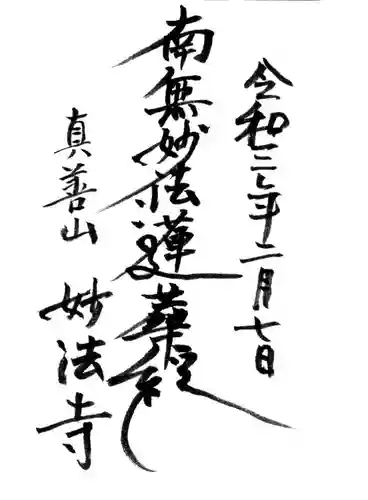 令和二年二月七日
南無妙法蓮華経
真善山 妙法寺